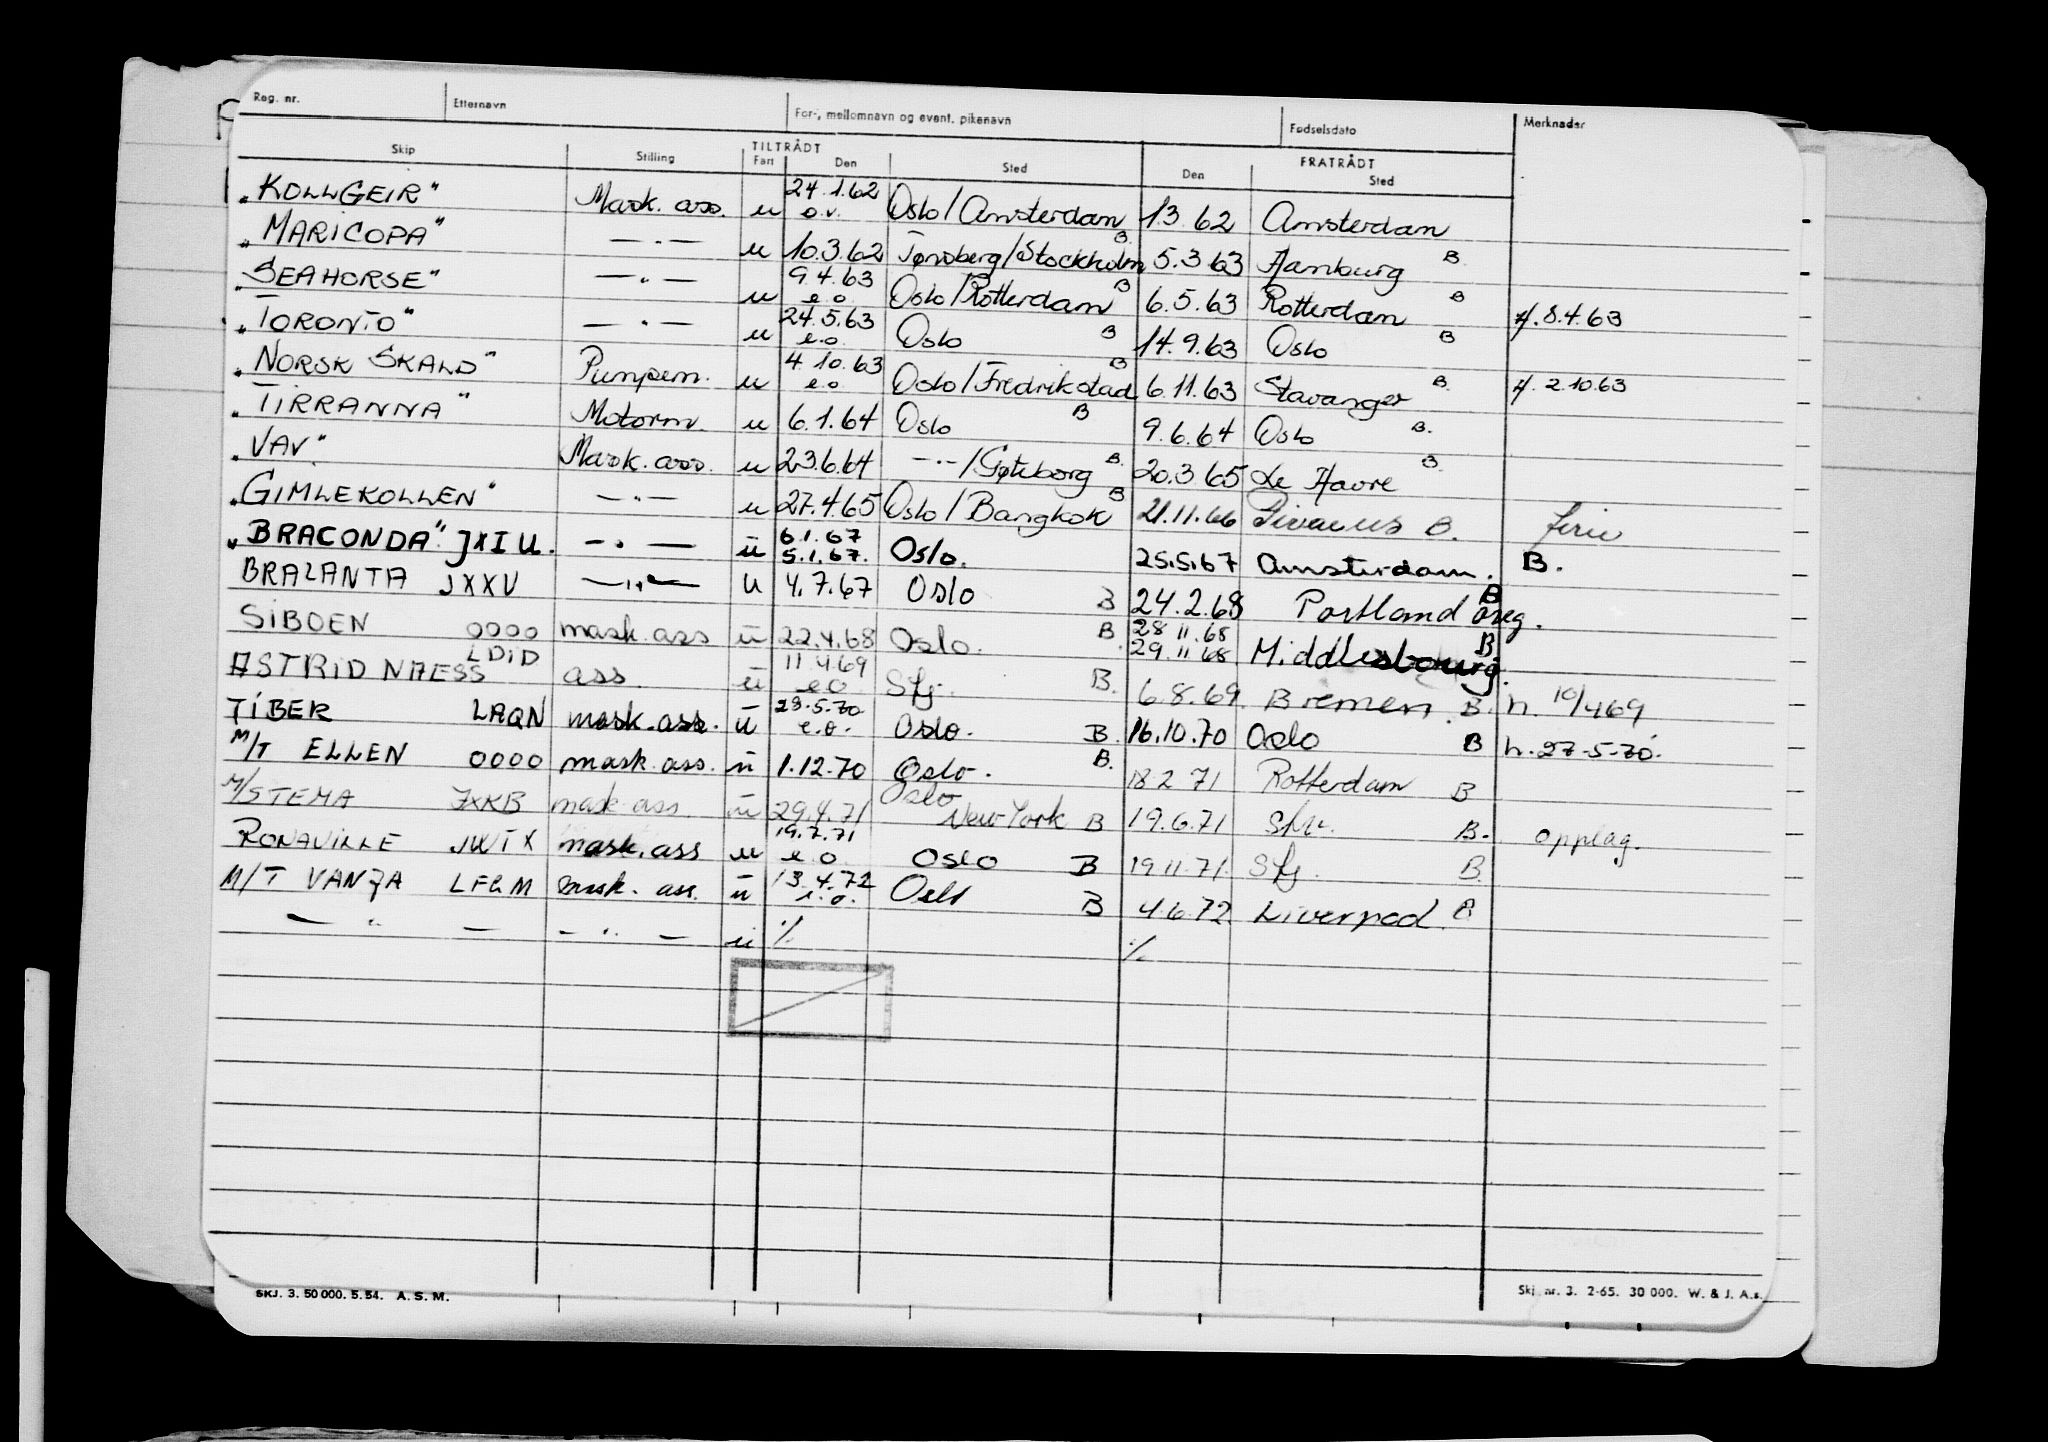 Reg. nr. Etternavn For-, mellomnavn og event. pikenavn Fødselsdato Merknader
Skip Stilling TILTRÅDT Fart Den Sted FRATRÅDT Den Sted
"KOLLGEIR" Mask. ass. u 24.1.62 o.v. Oslo/Amsterdam 1.3.62 Amsterdam
"MARICOPA" —.— u 10.3.62 Tønsberg/Stockholm B 5.3.63 Hamburg B
"SEAHORSE" —.— u 9.4.63 e.o. Oslo/Rotterdam B 6.5.63 Rotterdam B h. 8.4.63
"TORONTO" —.— u 24.5.63 e.o. Oslo B 14.9.63 Oslo B
"NORSK SKALD" Pumpem. u 4.10.63 e.o. Oslo/Fredrikstad B 6.11.63 Stavanger B. h. 2.10.63
"TIRRANNA" Motorm. u 6.1.64 Oslo B 9.6.64 Oslo B.
"VAV" Mask. ass. u 23.6.64 —..—/Gøteborg B. 20.3.65 Le Havre B.
"GIMLEKOLLEN" —..— u 27.4.65 Oslo/Bangkok B 21.11.66 Piraeus B. ferie
"BRACONDA" JXIU. —.— u 6.1.67 5.1.67. Oslo. 25.5.67 Amsterdam. B.
BRALANTA JXXV —..— u 4.7.67 Oslo B 24.2.68 Portland Oreg. B
SIBOEN OOOO mask. ass u 22.4.68 Oslo. B 28 11.68 29.11 68 Middlesbourg. B
ASTRID NAESS LDID ass. u 11 4.69 e o Sfj. B. 6.8.69. Bremen. B. h. 10/4 69
TIBER LAQN mask. ass. u 28.5.70 e.o. Oslo. B. 16.10.70 Oslo B h. 27-5-70.
M/T ELLEN OOOO mask. ass. u 1.12.70 Oslo. B. 18 2 71 Rotterdam B
M/S TEMA JXKB mask ass. u 29.4.71 Oslo New York B 19.6.71 B. opplag.
RONAVILLE JWTX mask. ass u 19.7.71 e o Oslo B 19 11.71. Sfj. B.
M/T VANJA LFGM mask. ass. u 13.4.72 e.o. Oslo B 4.6.72 Liverpool. B
— " — — " — u % %
SKJ. 3. 50 000. 5. 54. A. S. M. Skj. nr. 3. 2-65. 30 000. W. & J. A.s.